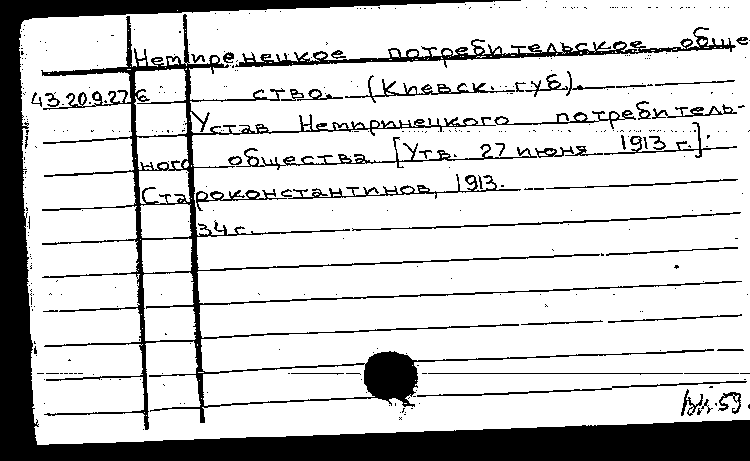 Немиренецкое потребительское обще
43.20.9.27б ство. (Киевск. губ).
Устав Немиринецкого потребитель-
ного общества [Утв. 27 июня 1913 г.].
Староконстантинов, 1913.
34 с.